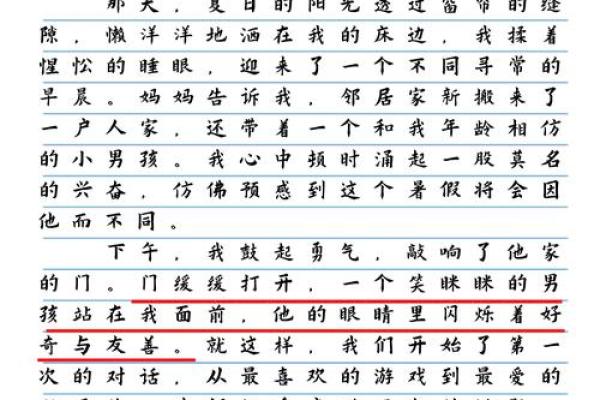 那天，夏日的阳光透过窗帘的缝
隙，懒洋洋地洒在我的床边，我揉着
惺忪的睡眼，迎来了一个不同寻常的
早晨。妈妈告诉我，邻居家新搬来了
一户人家，还带着一个和我年龄相仿
的小男孩。我心中顿时涌起一股莫名
的兴奋，仿佛预感到这个暑假将会因
他而不同。
下午，我鼓起勇气，敲响了他家
的门。门缓缓打开，一个笑眯眯的男
孩站在我面前，他的眼睛里闪烁着好
奇与友善。就这样，我们开始了第一
次的对话，从最喜欢的游戏到最爱的